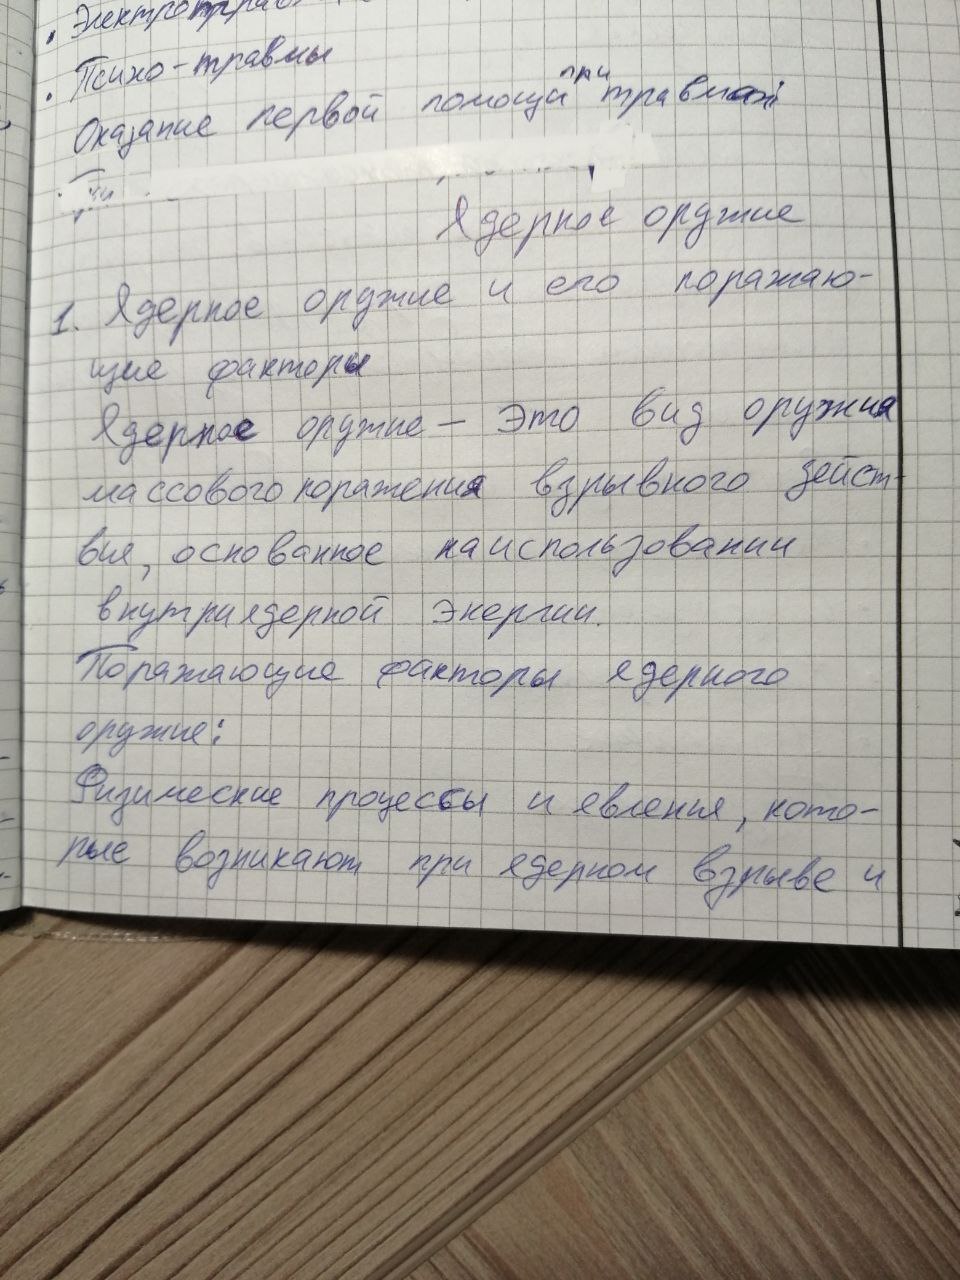 • Электротрав
• Психо-травмы
Оказание первой помощи при травмах:
Ядерное оружие
1. Ядерное оружие и его поражаю-
щие факторы
Ядерное оружие — это вид оружия
массового поражения взрывного дейст-
вия, основанное на использовании
внутриядерной энергии.
Поражающие факторы ядерного
оружие:
Физические процессы и явления, кото-
рые возникают при ядерном взрыве и